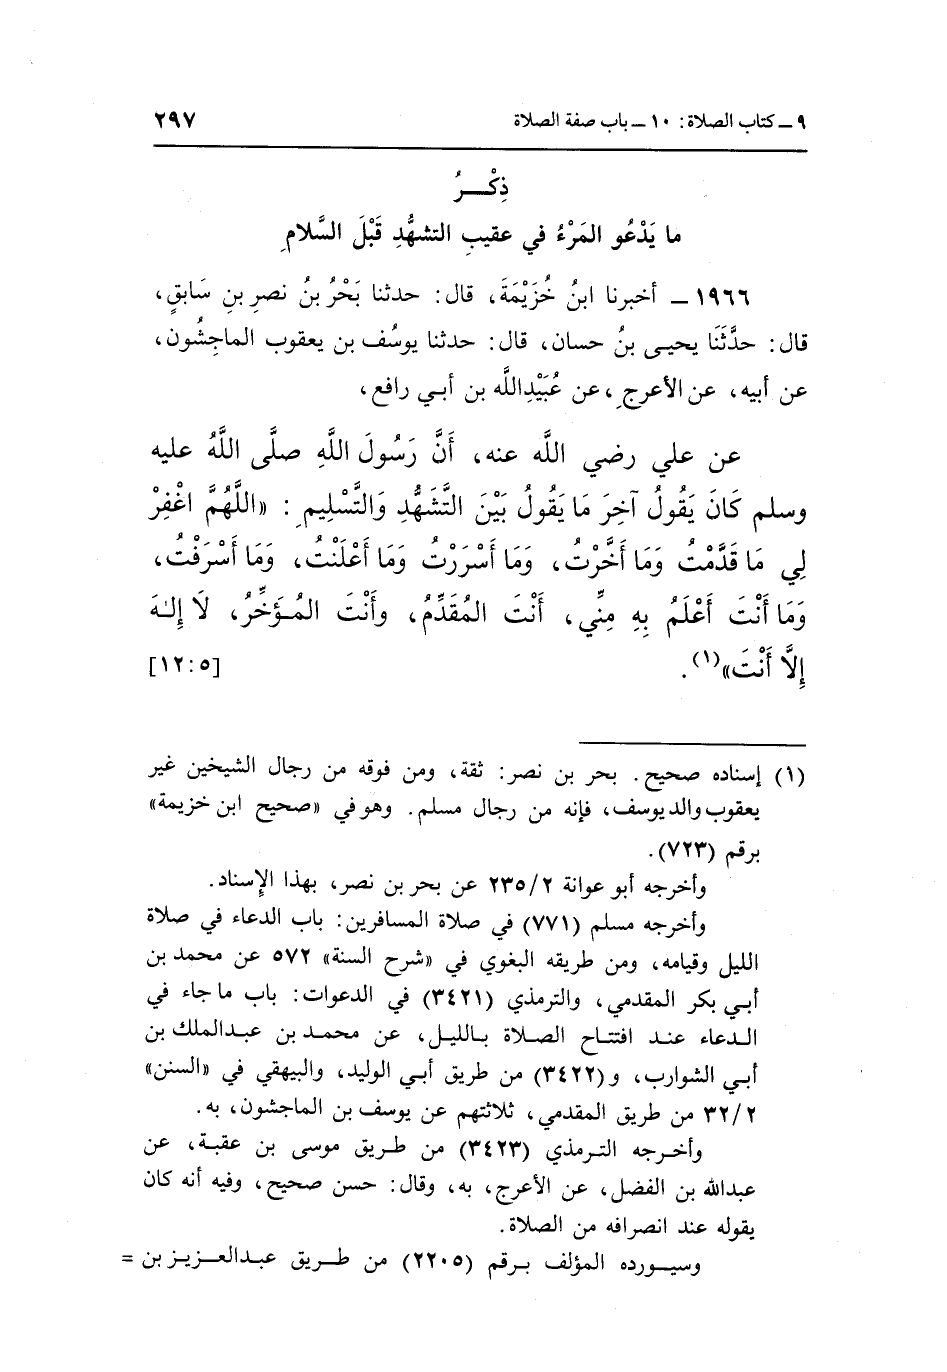 ٩ ــ كتاب الصلاة: ١٠ ــ باب صفة الصلاة ٢٩٧
ذِكْـــرُ
ما يَدْعُو المَرْءُ في عقيبِ التشهُّدِ قَبْلَ السَّلامِ
١٩٦٦ ــ أخبرنا ابنُ خُزَيْمَةَ، قال: حدثنا بَحْرُ بنُ نصرِ بنِ سَابقٍ،
قال: حدَّثَنا يحيى بنُ حسان، قال: حدثنا يوسُف بن يعقوب الماجِشُون،
عن أبيه، عن الأعرجِ، عن عُبَيْدِاللَّه بن أبي رافع،
عن علي رضي اللَّه عنه، أَنَّ رَسُولَ اللَّهِ صلَّى اللَّهُ عليه
وسلم كَانَ يَقُولُ آخِرَ مَا يَقُولُ بَيْنَ التَّشَهُّدِ وَالتَّسْلِيمِ: «اللَّهُمَّ اغْفِرْ
لِي مَا قَدَّمْتُ وَمَا أَخَّرْتُ، وَمَا أَسْرَرْتُ وَمَا أَعْلَنْتُ، وَمَا أَسْرَفْتُ،
وَمَا أَنْتَ أَعْلَمُ بِهِ مِنِّي، أَنْتَ المُقَدِّمُ، وأَنْتَ المُـؤَخِّرُ، لَا إِلـٰهَ
إِلَّا أَنْتَ»(١). [٥:١٢]
(١) إسناده صحيح. بحر بن نصر: ثقة، ومن فوقه من رجال الشيخين غير
يعقوب والد يوسف، فإنه من رجال مسلم. وهو في «صحيح ابن خزيمة»
برقم (٧٢٣).
وأخرجه أبو عوانة ٢٣٥/٢ عن بحر بن نصر، بهذا الإسناد.
وأخرجه مسلم (٧٧١) في صلاة المسافرين: باب الدعاء في صلاة
الليل وقيامه، ومن طريقه البغوي في «شرح السنة» ٥٧٢ عن محمد بن
أبي بكر المقدمي، والترمذي (٣٤٢١) في الدعوات: باب ما جاء في
الدعاء عند افتتاح الصلاة بالليل، عن محمد بن عبدالملك بن
أبي الشوارب، و(٣٤٢٢) من طريق أبي الوليد، والبيهقي في «السنن»
٣٢/٢ من طريق المقدمي، ثلاثتهم عن يوسف بن الماجشون، به.
وأخرجه الترمذي (٣٤٢٣) من طريق موسى بن عقبة، عن
عبدالله بن الفضل، عن الأعرج، به، وقال: حسن صحيح، وفيه أنه كان
يقوله عند انصرافه من الصلاة.
وسيورده المؤلف برقم (٢٢٠٥) من طريق عبدالعزيز بن =